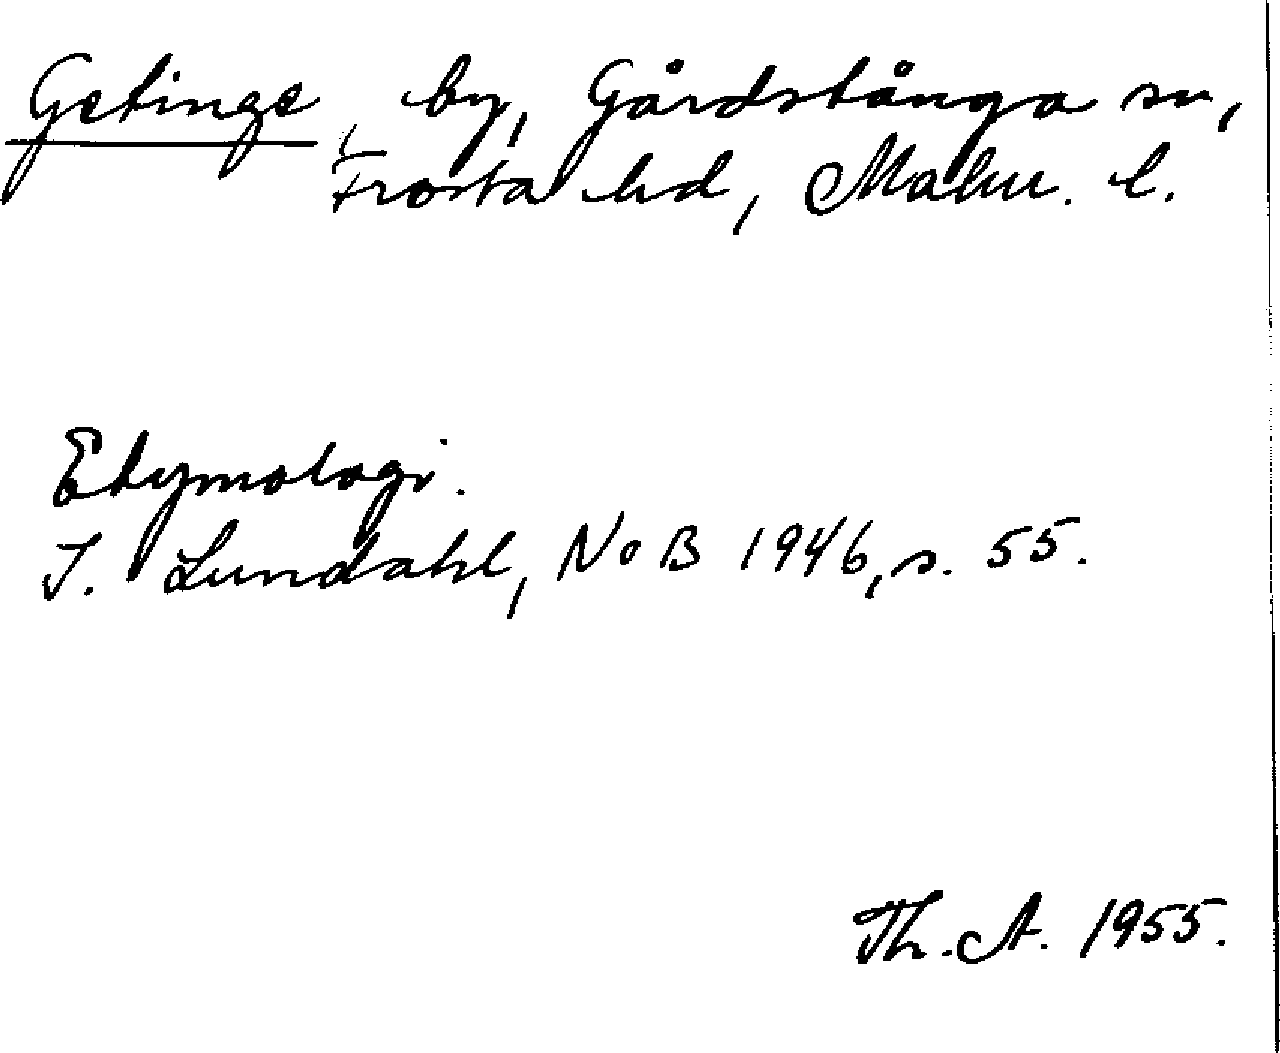 Getinge, by, Gårdstånga sn,
Frosta hd, Malm. l.
Etymologi.
I. Lundahl, NoB 1946, s. 55.
Th. A. 1955.